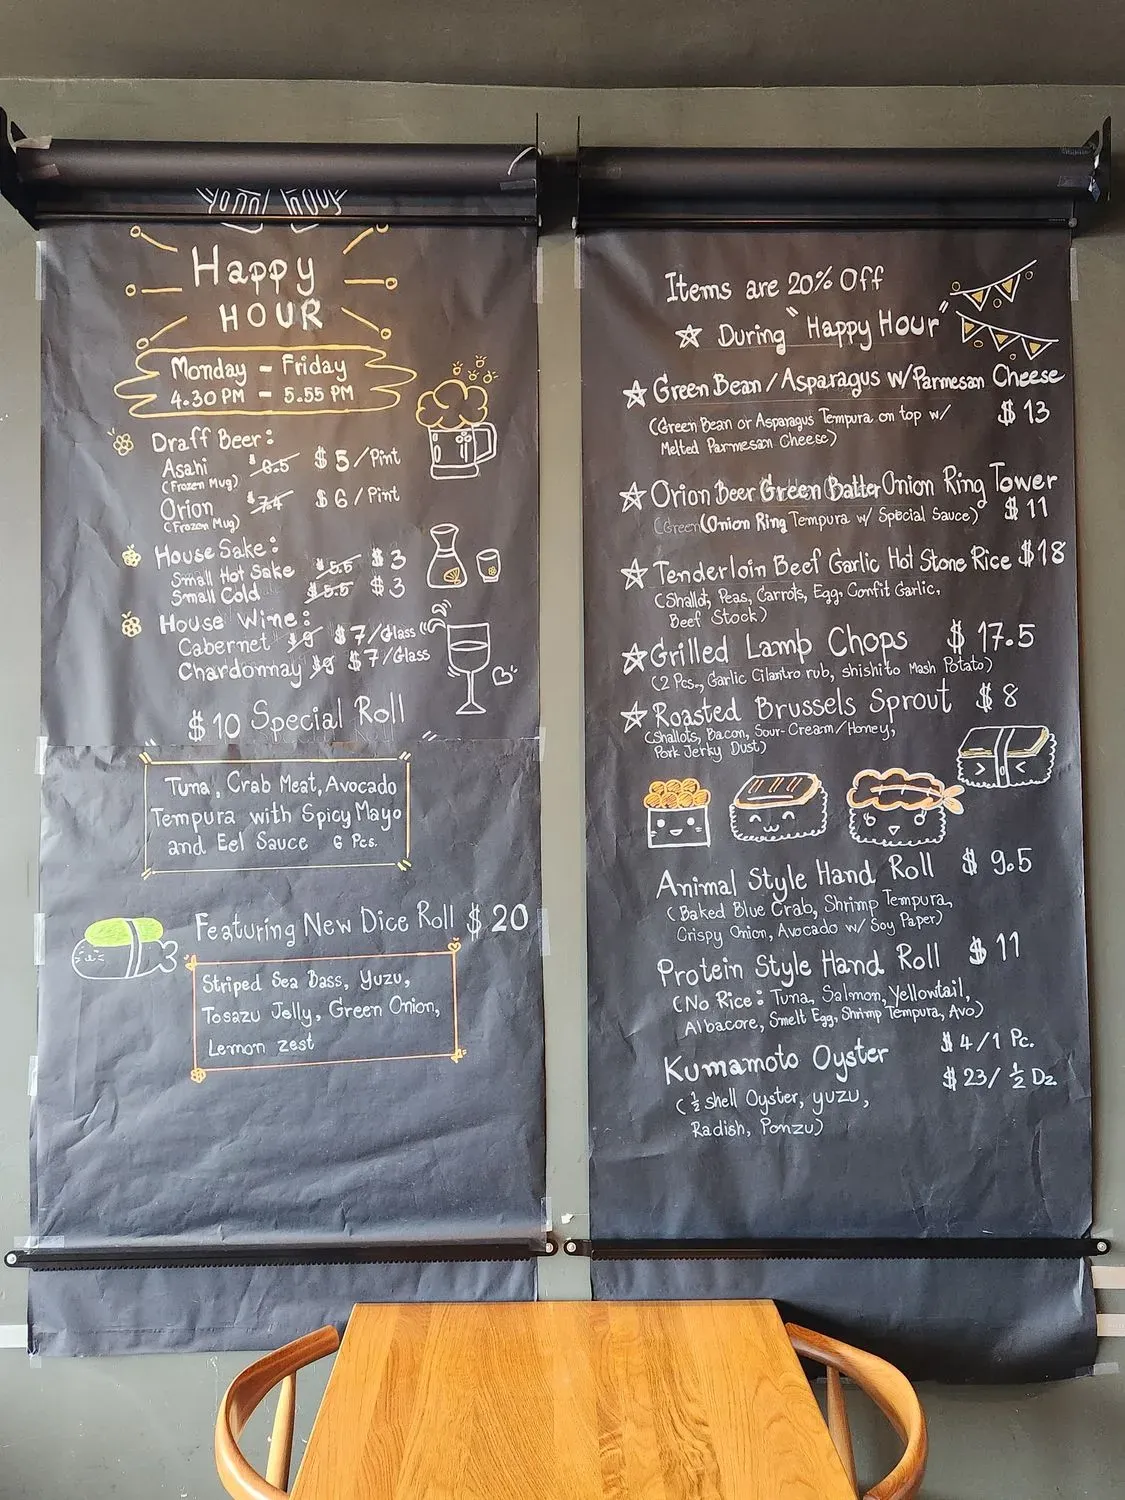 Happy
HOUR
Monday - Friday
4.30 PM - 5.55 PM
Draff Beer:
Asahi $6.5 $5/Pint
(Frozen Mug)
Orion $7.4 $6/Pint
(Frozen Mug)
House Sake:
Small Hot Sake $5.5 $3
Small Cold $5.5 $3
House Wine:
Cabernet $9 $7/Glass
Chardonnay $9 $7/Glass
$10 Special Roll
Tuna, Crab Meat, Avocado
Tempura with Spicy Mayo
and Eel Sauce 6 Pcs.
Featuring New Dice Roll $20
Striped Sea Bass, Yuzu,
Tosazu Jelly, Green Onion,
Lemon zest
Items are 20% Off
During "Happy Hour"
Green Bean/Asparagus w/Parmesan Cheese
$13
(Green Bean or Asparagus Tempura on top w/
Melted Parmesan Cheese)
Orion Beer Green Batter Onion Ring Tower
$11
(Green (Onion Ring Tempura w/ Special Sauce)
Tenderloin Beef Garlic Hot Stone Rice $18
(Shallot, Peas, Carrots, Egg, Confit Garlic,
Beef Stock)
Grilled Lamp Chops $17.5
(2 Pcs., Garlic Cilantro rub, shishito Mash Potato)
Roasted Brussels Sprout $8
(Shallots, Bacon, Sour-Cream/Honey,
Pork Jerky Dust)
Animal Style Hand Roll $9.5
(Baked Blue Crab, Shrimp Tempura,
Crispy Onion, Avocado w/ Soy Paper)
Protein Style Hand Roll $11
(No Rice: Tuna, Salmon, Yellowtail,
Albacore, Smelt Egg, Shrimp Tempura, Avo)
Kumamoto Oyster $4/1 Pc.
$23/ ½ Dz.
(½ shell Oyster, yuzu,
Radish, Ponzu)